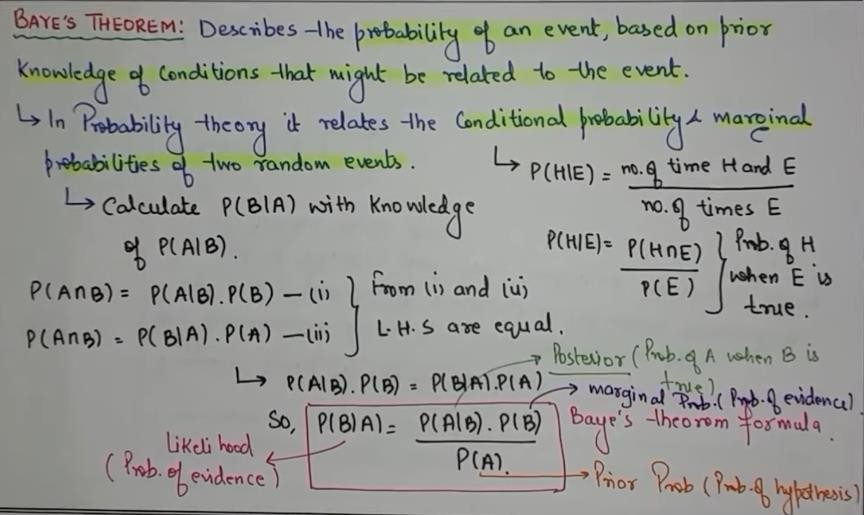 BAYE'S THEOREM: Describes the probability of an event, based on prior
knowledge of conditions that might be related to the event.
↳ In Probability theory it relates the Conditional probability & marginal
probabilities of two random events.
↳ P(H|E) = no. of time H and E / no. of times E
↳ Calculate P(B|A) with knowledge
of P(A|B).
P(H|E) = P(H∩E) / P(E) } Prob. of H
when E is
true.
P(A∩B) = P(A|B). P(B) — (i)
P(A∩B) = P(B|A). P(A) — (ii)
} From (i) and (ii)
L.H.S are equal.
↳ P(A|B). P(B) = P(B|A). P(A)
Posterior (Prob. of A when B is
true)
marginal Prob. (Prob. of evidence)
So, P(B|A) = P(A|B). P(B) / P(A).
Baye's theorem formula.
Likelihood
(Prob. of evidence)
Prior Prob (Prob. of hypothesis)